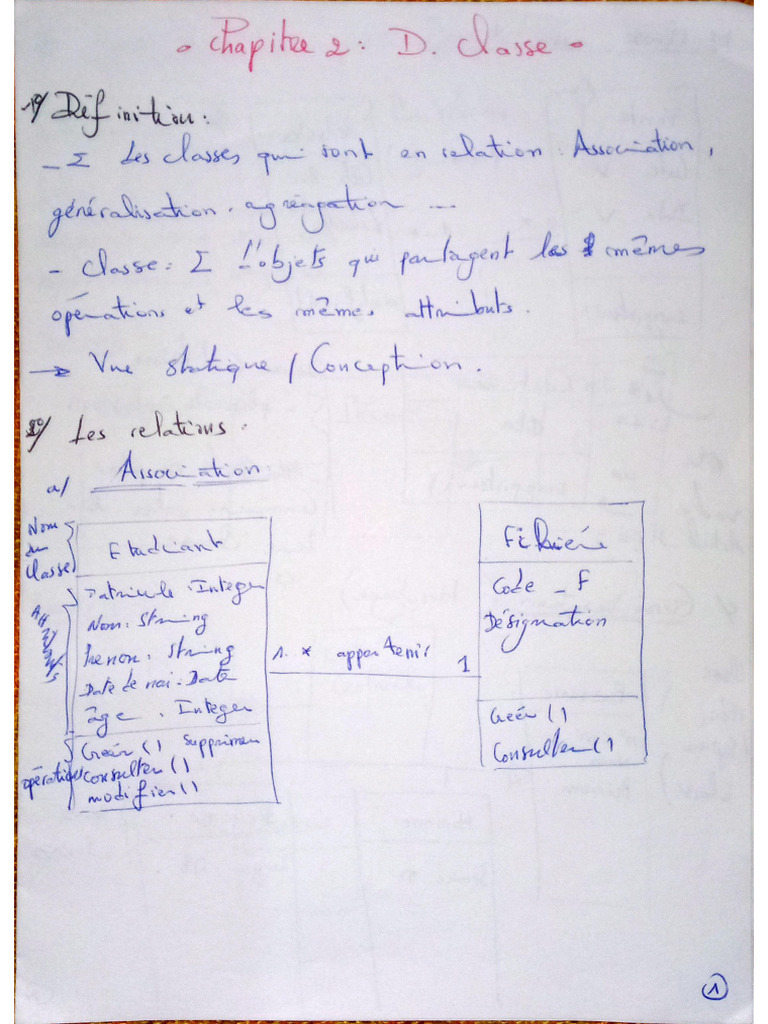 • Chapitre 2 : D. Classe •
1°/ Définition :
- Σ Les classes qui sont en relation : Association,
généralisation, agrégation ...
- Classe : Σ d'objets qui partagent les mêmes
opérations et les mêmes attributs.
→ Vue statique / Conception.
2°/ Les relations :
a/ Association
Nom du Classe
Etudiant
Attributs
Matricule : Integer
Nom : String
Prenom : String
Date de nai : Date
âge : Integer
opérations
Créer () supprimer
consulter ()
modifier ()
1..* appartenir 1
Filière
Code _ F
Désignation
Créer ()
Consulter ()
1